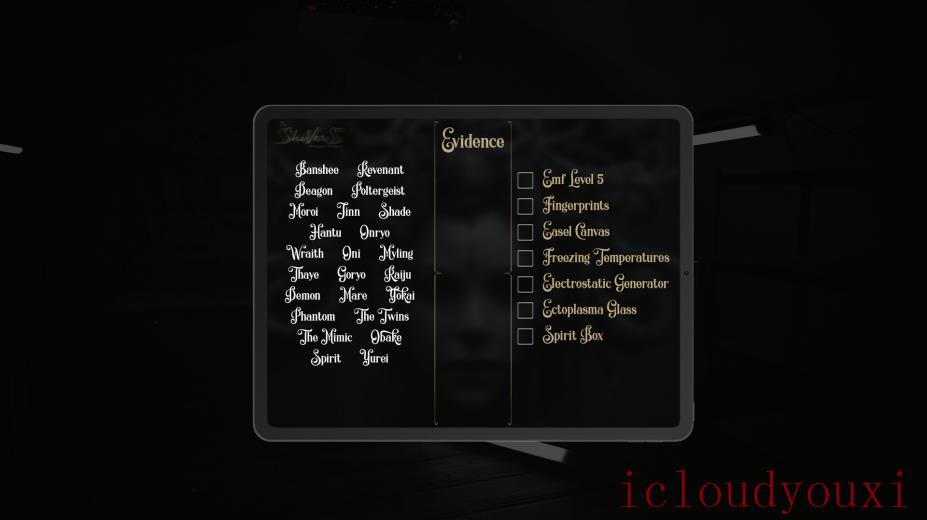 ShiVerS
Evidence
Banshee Revenant
Deagon Poltergeist
Moroi Jinn Shade
Hantu Onryo
Wraith Oni Myling
Thaye Goryo Raiju
Demon Mare Yokai
Phantom The Twins
The Mimic Obake
Spirit Yurei
Emf Level 5
Fingerprints
Easel Canvas
Freezing Temperatures
Electrostatic Generator
Ectoplasma Glass
Spirit Box
icloudyouxi